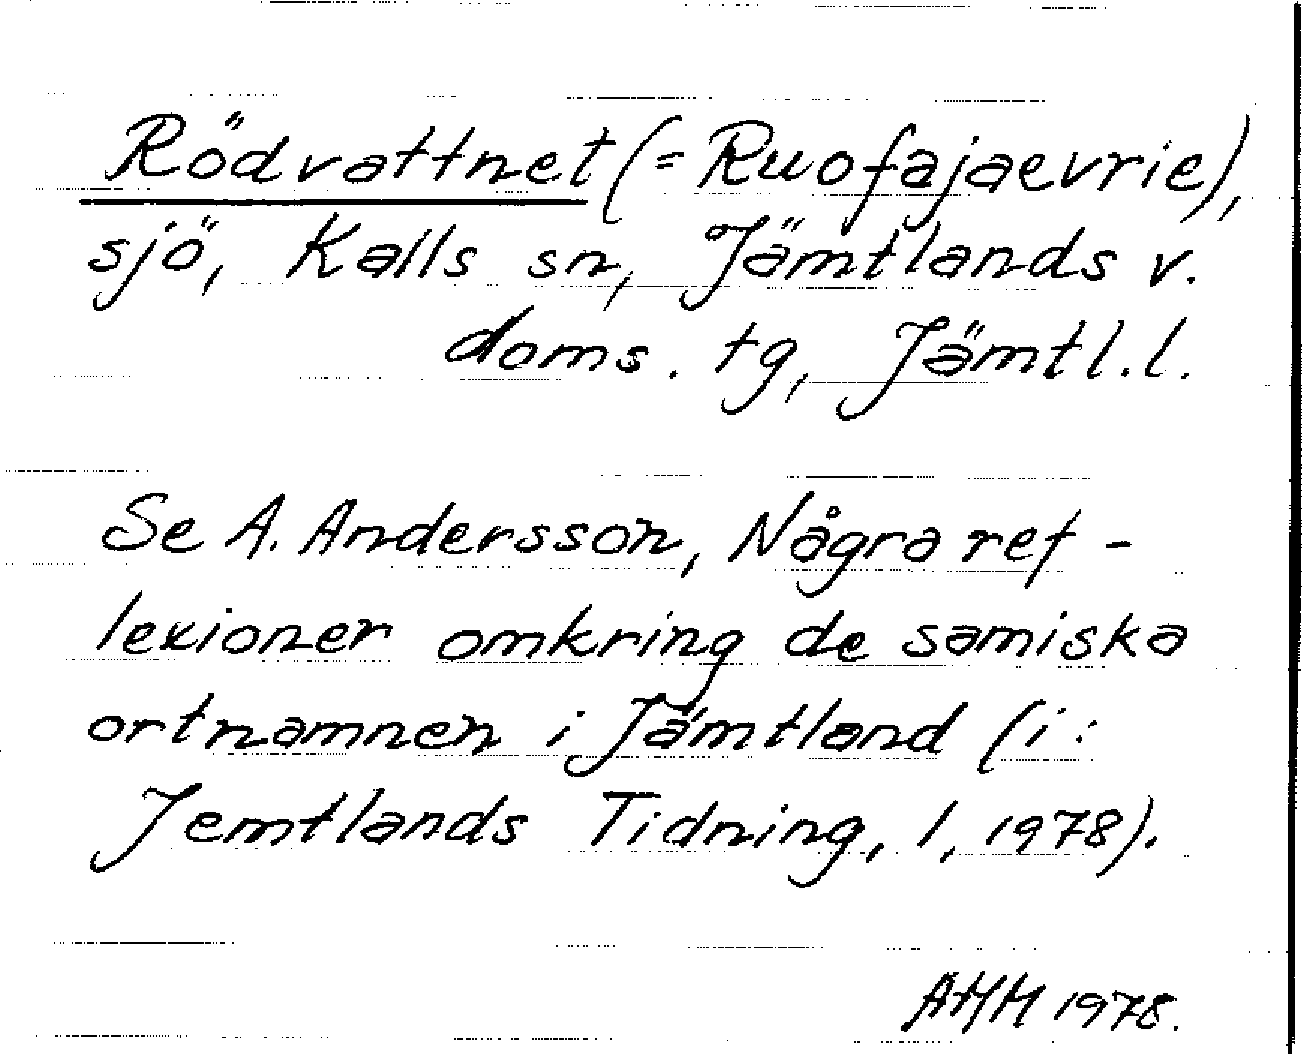 Rödvattnet (= Ruofajaevrie),
sjö, Kalls sn, Jämtlands v.
doms. tg, Jämtl.l.
Se A. Andersson, Några ref-
lexioner omkring de samiska
ortnamnen i Jämtland (i:
Jemtlands Tidning, 1, 1978).
AHM 1978.